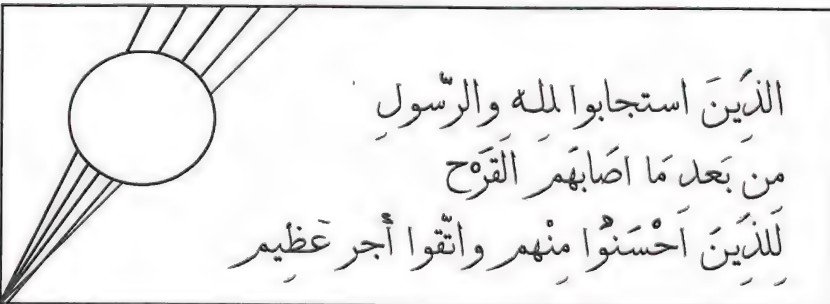 الذَّينَ استجابوا لمله والرّسولِ
من بَعد مَا اصَابَهمُ القَرْح
لِلذَّينَ اَحْسَنُوْا مِنْهم واتّقوا أَجر عَظِيم